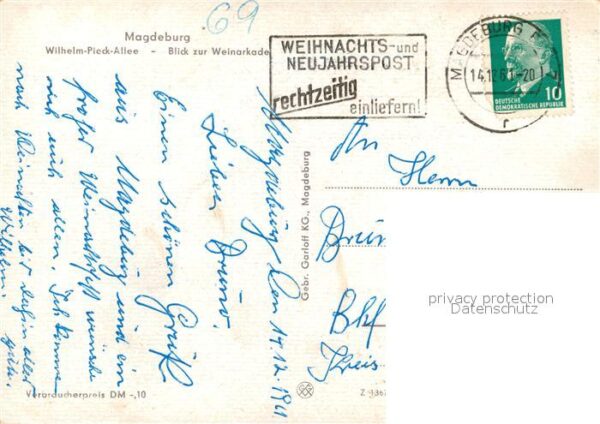 69
Magdeburg
Wilhelm-Pieck-Allee - Blick zur Weinarkade
WEIHNACHTS- und
NEUJAHRSPOST
rechtzeitig
einliefern!
MAGDEBURG
14.12.61-20
r
10
DEUTSCHE
DEMOKRATISCHE REPUBLIK
Magdeburg den 14.12.1961
Lieber Bruno!
Einen schönen Gruß
aus Magdeburg und ein
frohes Weihnachtsfest wünsche
ich euch allen. Ich komme
nach Weihnachten bis dahin alles
gute.
Wilhelm.
An
Herrn
Brun
Bhf
Kreis
Gebr. Garloff KG., Magdeburg
privacy protection
Datenschutz
Verbraucherpreis DM -,10